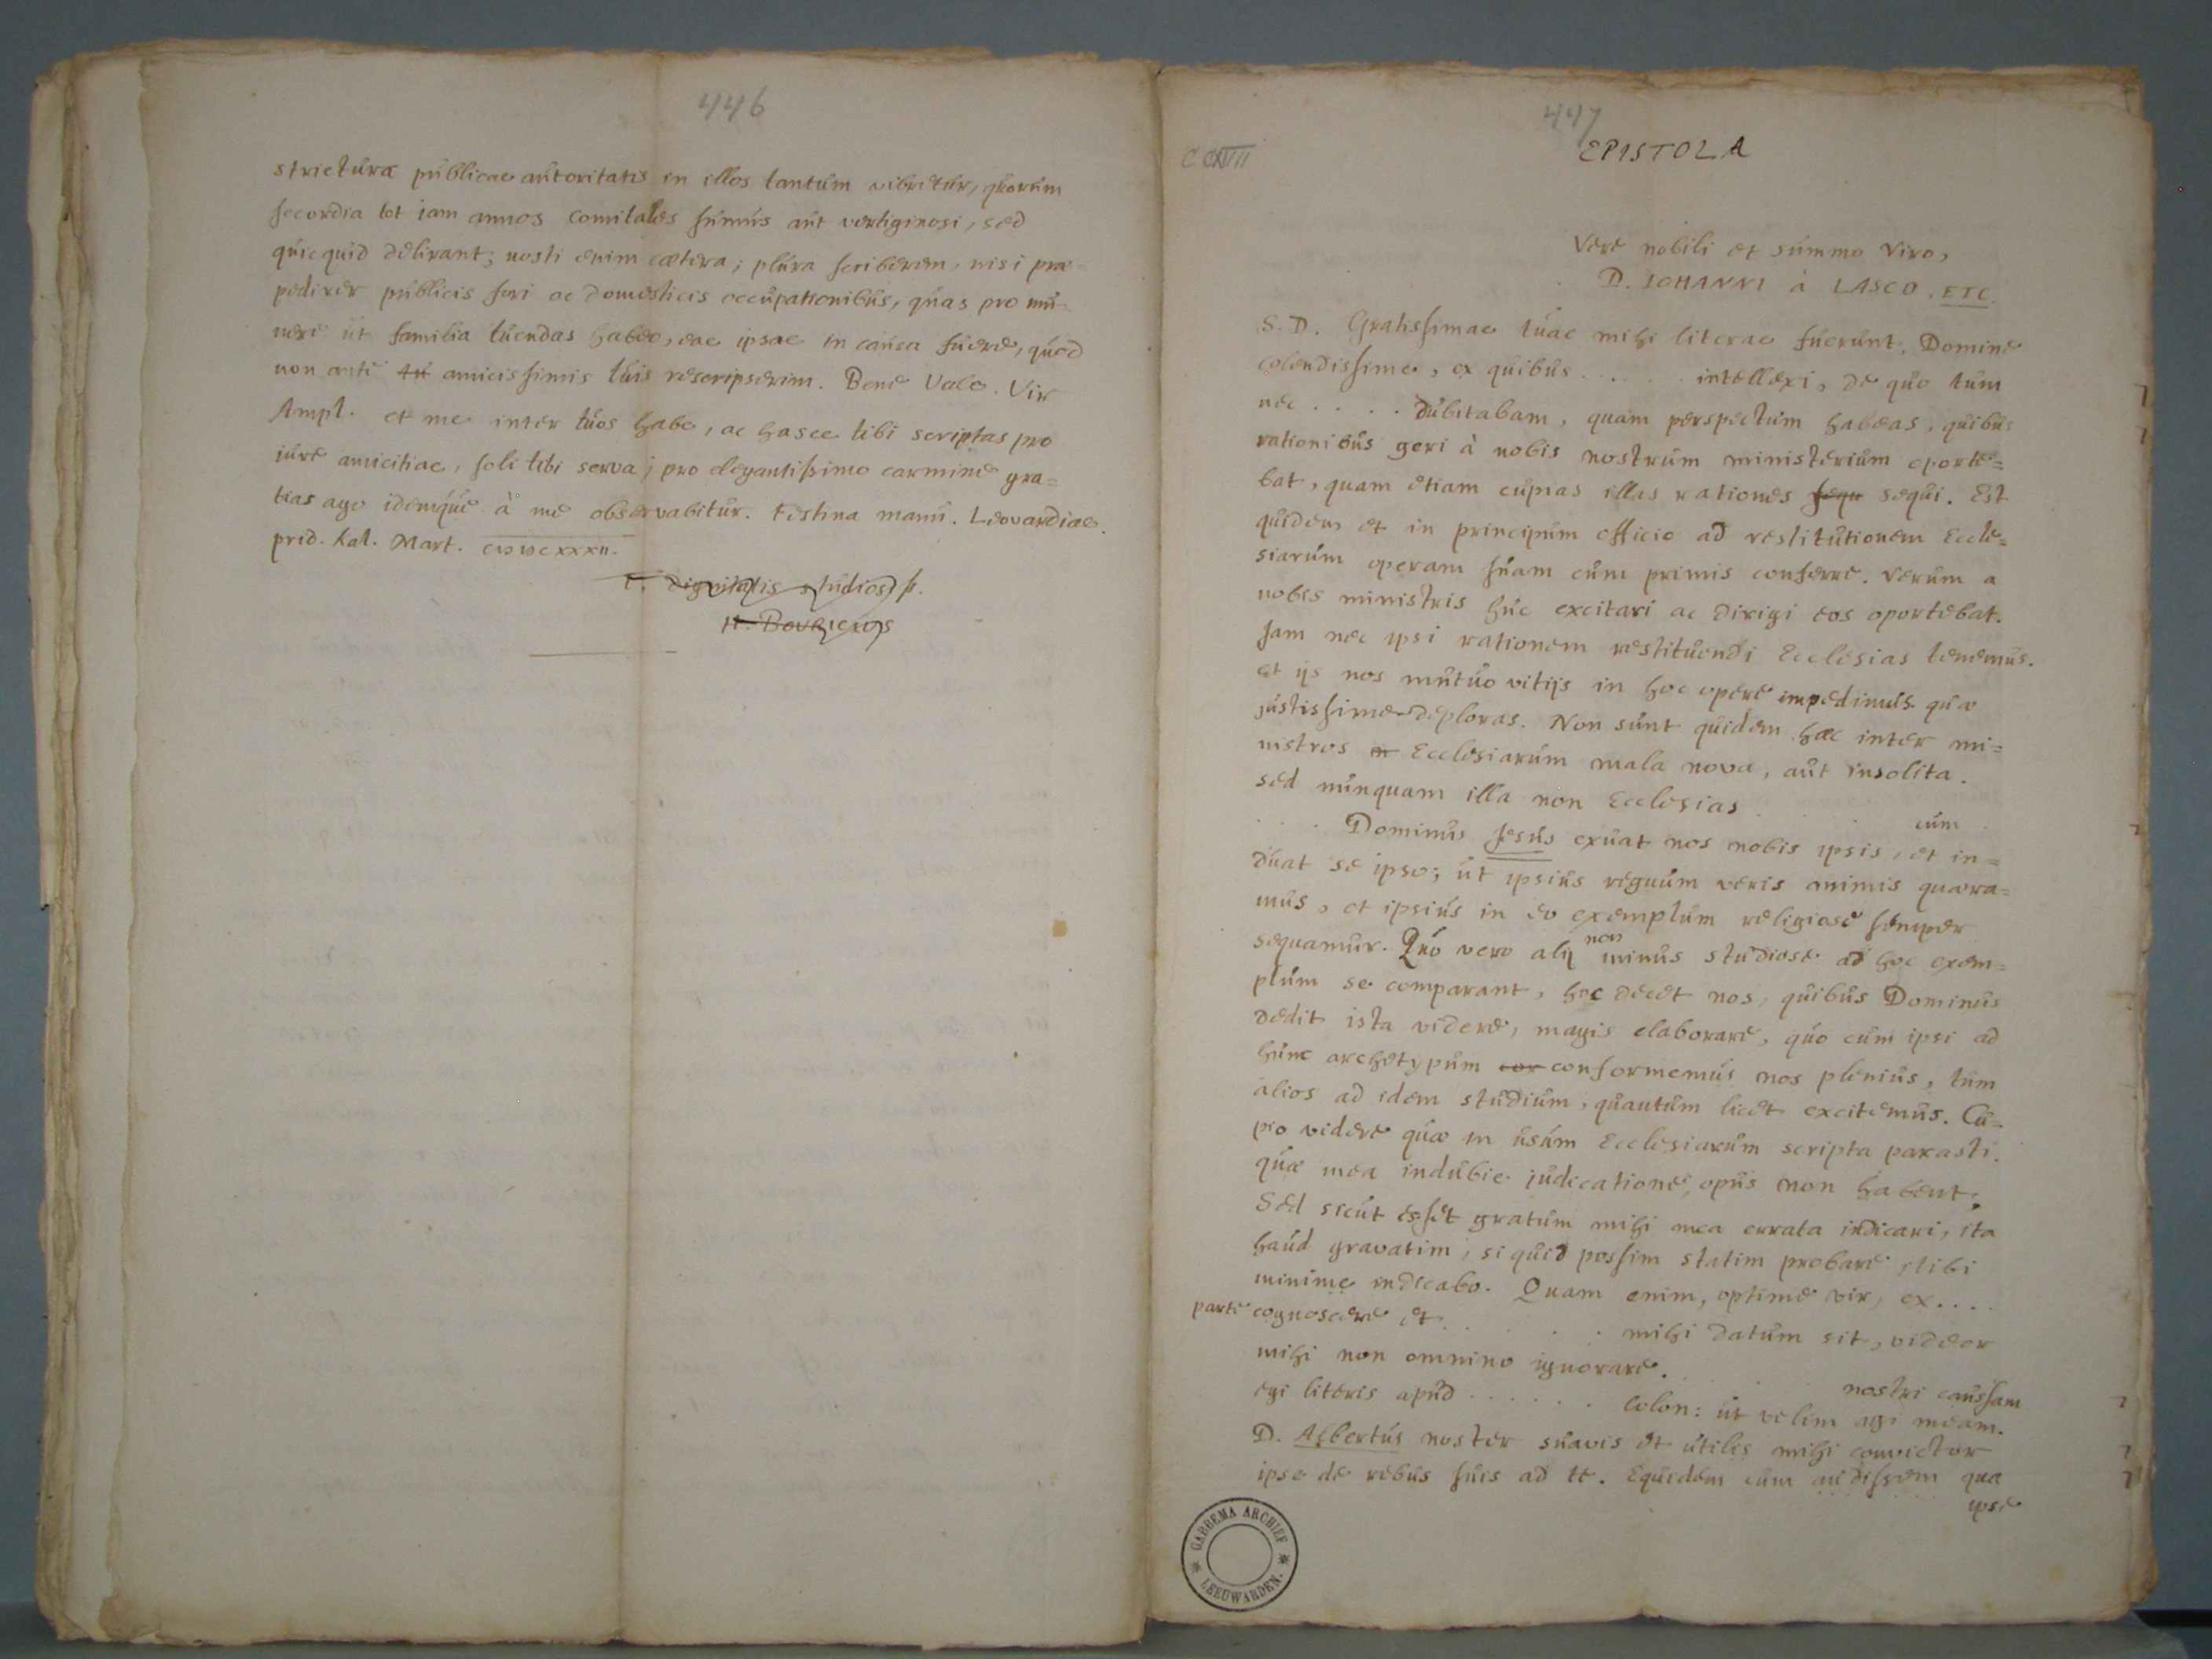 446
strictura publicae autoritatis in illos tantum vibretur, quorum
secordia tot iam annos comitales sumus aut vertiginosi, sed
quicquid delirant; nosti enim caetera; plura scriberem, nisi prae=
pedirer publicis fori ac domesticis occupationibus, quas pro mu=
nere ut familia tuendas habeo, eae ipsae in causa fuere, quod
non ante tu amicissimis tuis rescripserim. Bene Vale. Vir
Ampl. et me inter tuos habe, ac hasce tibi scriptas pro
iure amicitiae, soli tibi serva; pro elegantissimo carmine gra=
tias ago idemque à me observabitur. Festina manu. Leovardiae.
prid. Kal. Mart. CIↃ IↃ C XXXII.
T. Dignitatis studios
447
EPISTOLA
CCXVII
Vere nobili et summo Viro,
D. IOHANNI à LASCO. ETC.
S. D. Gratissimae tuae mihi literae fuerunt, Domine
colendissime, ex quibus . . . . . intellexi, de quo tum
nec . . . . dubitabam, quam perspectum habeas, quibus
rationibus geri à nobis nostrum ministerium oporte=
bat, quam etiam cupias illas rationes sequ sequi. Est
quidem et in principum officio ad restitutionem Eccle=
siarum operam suam cum primis conferre. Verum a
nobis ministris huc excitari ac dirigi eos oportebat.
Jam nec ipsi rationem restituendi Ecclesias tenemus.
et ijs nos mutuo vitijs in hoc opere impedimus quae
justissime deploras. Non sunt quidem haec inter mi=
nistros in Ecclesiarum mala nova, aut insolita.
sed nunquam illa non Ecclesias . . . cum
. . . Dominus Jesus exuat nos nobis ipsis, et in=
duat se ipso; ut ipsius regnum veris animis quaera=
mus, et ipsius in eo exemplum religiose semper
sequamur. Quo vero alij non minus studiose ad hoc exem=
plum se comparant, hoc decet nos, quibus Dominus
dedit ista videre, magis elaborare, quo cum ipsi ad
hunc archetypum con conformemus nos plenius, tum
alios ad idem studium, quantum licet excitemus. Cu=
pio videre quae in usum Ecclesiarum scripta parasti.
quae mea indubie iudicatione, opus non habent;
Sed sicut esset gratum mihi mea errata indicari, ita
haud gravatim, si quid possim statim probare, tibi
minime indicabo. Quam enim, optime vir, ex . . . .
parte cognoscere et . . . . . mihi datum sit, videor
mihi non omnino ignorare. . . . . nostri caussam
egi literis apud . . . . . . Colon: ut velim agi meam.
D. Albertus noster suavis et utilis mihi convictor
ipse de rebus suis ad te. Equidem cum audissem qua
ipse
GABBEMA ARCHIEF
LEEUWARDEN.